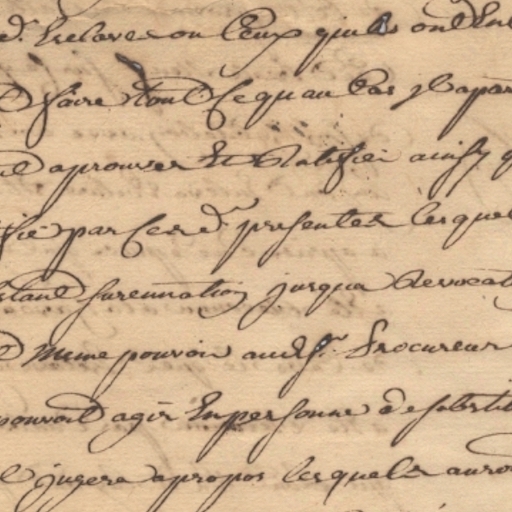 d. Esclaves ou Ceux quils ont En
faire tout Ce quau Cas Il apar
aprouver Et Ratifier ainsy q
fie par Ces d. presentes lesquel
stant surennation jusqua Revocat
Meme pouvoir aud. Sr. Procureur
pouvoit agir En personne & substi
jugera apropos lesquels auro